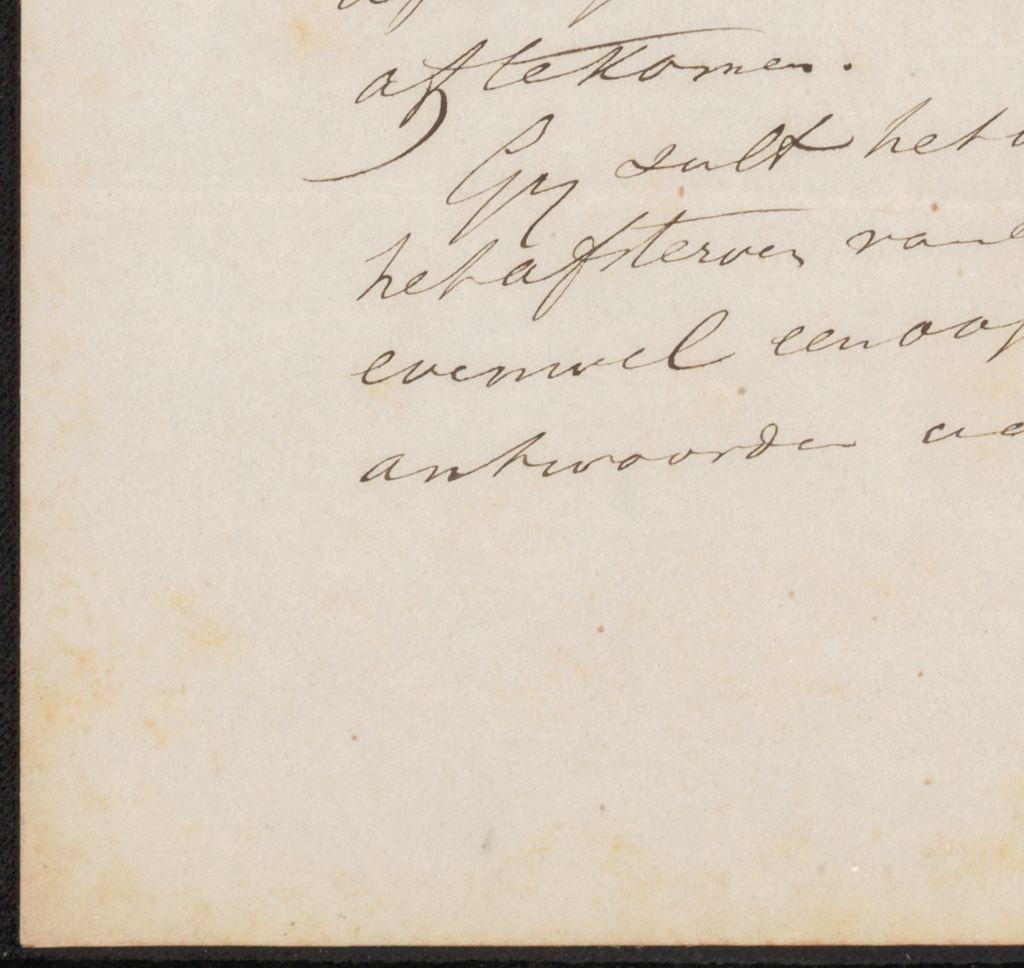 aftekomen.
Gy sult het
het afsterven van
evenwel een oog
antwoorden